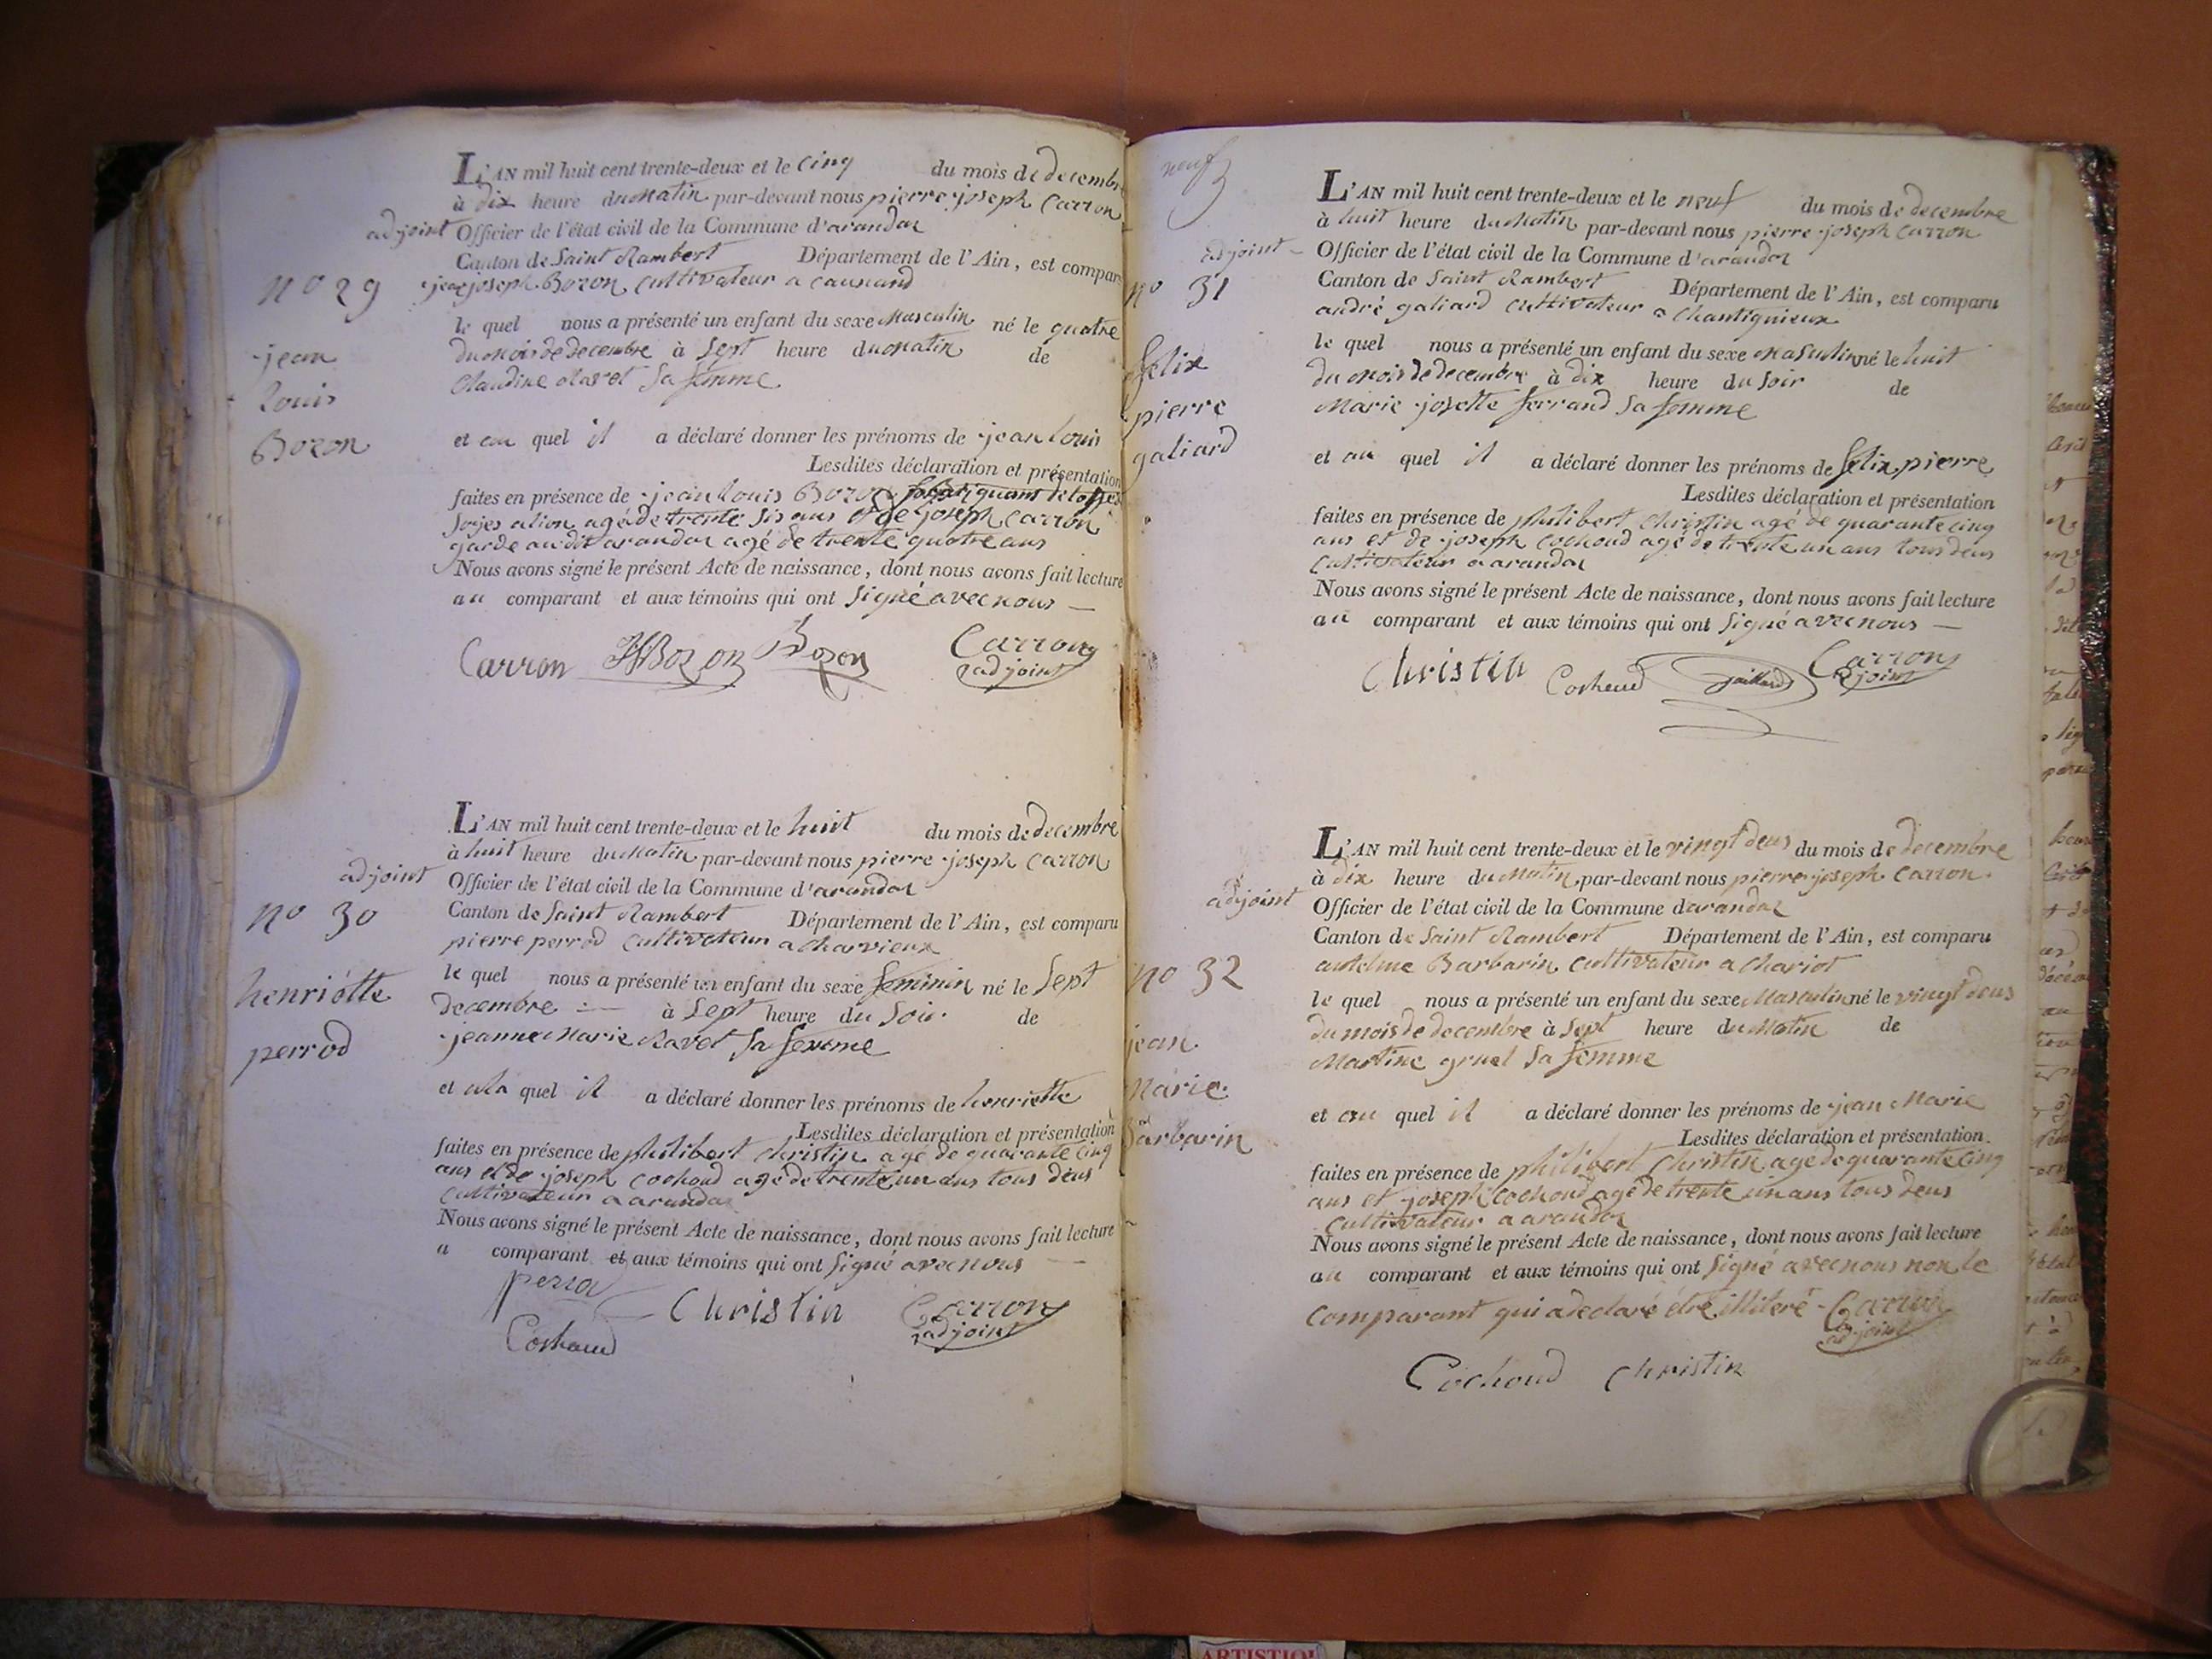 L'AN mil huit cent trente-deux et le cinq du mois de decembre
à dix heure du matin par-devant nous pierre joseph Carron
adjoint Officier de l'état civil de la Commune d'arandas
Canton de Saint Rambert Département de l'Ain, est comparu
n° 29 joseph Bozon cultivateur a
le quel nous a présenté un enfant du sexe Masculin né le quatre
jean du mois de decembre à Sept heure du matin de
Claudine Ravet Sa femme
louis
Bozon et au quel il a déclaré donner les prénoms de jean louis
Lesdites déclaration et présentation
faites en présence de jean louis Bozon
agé de trente six ans et de joseph Carron
garde audit arandas agé de trente quatre ans
Nous avons signé le présent Acte de naissance, dont nous avons fait lecture
au comparant et aux témoins qui ont Signé avec nous —
Carron Bozon Bozon Carron
adjoint
L'AN mil huit cent trente-deux et le huit du mois de decembre
à huit heure du Matin par-devant nous pierre joseph Carron
adjoint Officier de l'état civil de la Commune d'arandas
n° 30 Canton de Saint Rambert Département de l'Ain, est comparu
pierre perrod cultivateur a charvieux
henriètte le quel nous a présenté un enfant du sexe feminin né le Sept
decembre à Sept heure du Soir de
perrod jeanne Marie Ravet Sa femme
et à la quel il a déclaré donner les prénoms de henriètte
Lesdites déclaration et présentation
faites en présence de philibert Christin agé de quarante cinq
ans et de joseph cochoud agé de trente un ans tous deus
cultivateur a arandas
Nous avons signé le présent Acte de naissance, dont nous avons fait lecture
a comparant et aux témoins qui ont Signé avec nous —
perrod Christin Carron
Cochoud adjoint
neuf
L'AN mil huit cent trente-deux et le neuf du mois de decembre
à huit heure du Matin par-devant nous pierre joseph Carron
adjoint Officier de l'état civil de la Commune d'arandas
n° 31 Canton de Saint Rambert Département de l'Ain, est comparu
andré galiard cultivateur a Chantignieux
le quel nous a présenté un enfant du sexe Masculin né le huit
felix du mois de decembre à dix heure du Soir de
pierre Marie josette ferrand Sa femme
galiard et au quel il a déclaré donner les prénoms de felix pierre
Lesdites déclaration et présentation
faites en présence de philibert Christin agé de quarante cinq
ans et de joseph cochoud agé de trente un ans tous deus
cultivateur a arandas
Nous avons signé le présent Acte de naissance, dont nous avons fait lecture
au comparant et aux témoins qui ont Signé avec nous —
Christin Cochoud gaillard Carron
adjoint
L'AN mil huit cent trente-deux et le vingt deus du mois de decembre
à dix heure du Matin par-devant nous pierre joseph Carron
adjoint Officier de l'état civil de la Commune darandas
Canton de Saint Rambert Département de l'Ain, est comparu
n° 32 antelme Barbarin cultivateur a Chariot
le quel nous a présenté un enfant du sexe Masculin né le vingt deus
jean du mois de decembre à Sept heure du Matin de
Martine gruel Sa femme
Marie
et au quel il a déclaré donner les prénoms de jean Marie
Barbarin Lesdites déclaration et présentation
faites en présence de philibert Christin agé de quarante cinq
ans et joseph cochoud agé de trente un ans tous deus
cultivateur a arandas
Nous avons signé le présent Acte de naissance, dont nous avons fait lecture
au comparant et aux témoins qui ont Signé avec nous non le
comparant qui a declaré être illiteré Carron
adjoint
Cochoud Christin